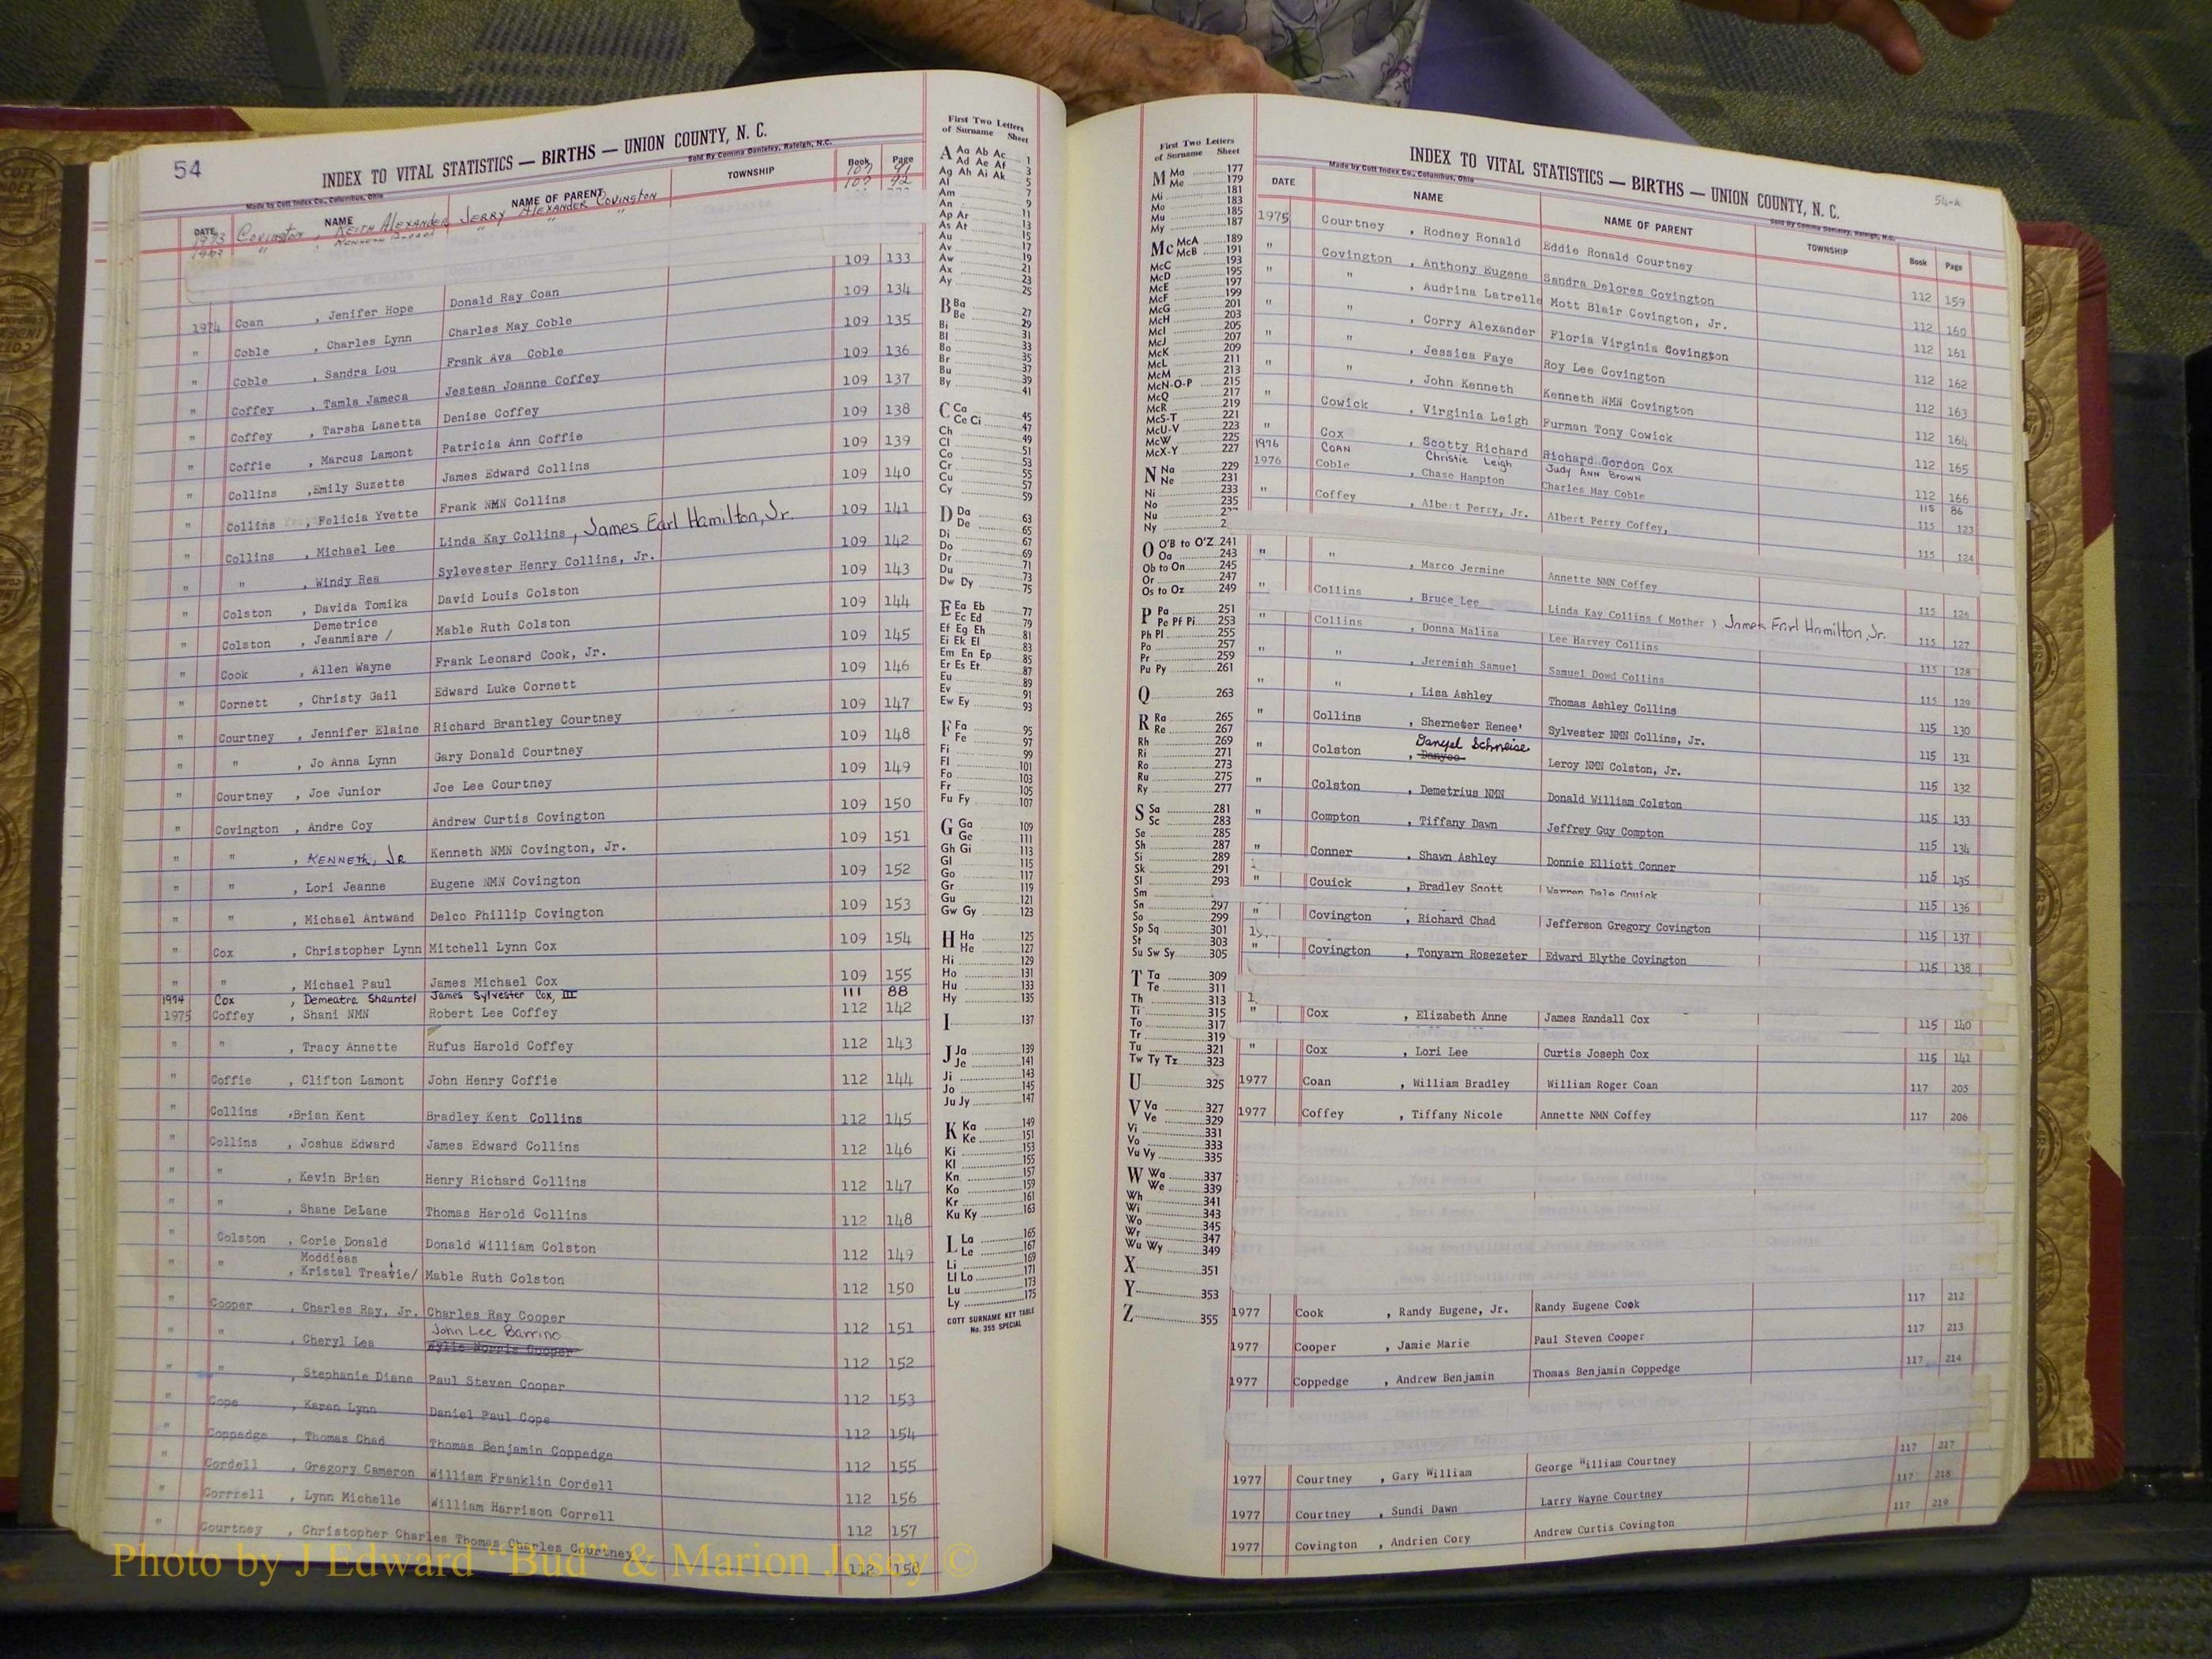 54
INDEX TO VITAL STATISTICS — BIRTHS — UNION COUNTY, N. C.
Made by Cott Index Co., Columbus, Ohio
Sold By Comma Danieley, Raleigh, N.C.
DATE NAME NAME OF PARENT TOWNSHIP Book Page
1973 COVINGTON , KEITH ALEXANDER JERRY ALEXANDER COVINGTON 107 91
" , KENNETH " " 107 92
109 133
1974 Coan , Jenifer Hope Donald Ray Coan 109 134
" Coble , Charles Lynn Charles May Coble 109 135
" Coble , Sandra Lou Frank Ava Coble 109 136
" Coffey , Tamla Jameca Jestean Joanne Coffey 109 137
" Coffey , Tarsha Lanetta Denise Coffey 109 138
" Coffie , Marcus Lamont Patricia Ann Coffie 109 139
" Collins ,Emily Suzette James Edward Collins 109 140
" Collins , Felicia Yvette Frank NMN Collins 109 141
" Collins , Michael Lee Linda Kay Collins , James Earl Hamilton, Jr. 109 142
" " , Windy Rea Sylevester Henry Collins, Jr. 109 143
" Colston , Davida Tomika David Louis Colston 109 144
" Colston , Demetrice Jeanmiare / Mable Ruth Colston 109 145
" Cook , Allen Wayne Frank Leonard Cook, Jr. 109 146
" Cornett , Christy Gail Edward Luke Cornett 109 147
" Courtney , Jennifer Elaine Richard Brantley Courtney 109 148
" " , Jo Anna Lynn Gary Donald Courtney 109 149
" Courtney , Joe Junior Joe Lee Courtney 109 150
" Covington , Andre Coy Andrew Curtis Covington 109 151
" " , KENNETH, JR Kenneth NMN Covington, Jr. 109 152
" " , Lori Jeanne Eugene NMN Covington 109 153
" " , Michael Antwand Delco Phillip Covington 109 154
" Cox , Christopher Lynn Mitchell Lynn Cox
" " , Michael Paul James Michael Cox 109 155
1974 Cox , Demeatra Shauntel James Sylvester Cox, III 111 88
1975 Coffey , Shani NMN Robert Lee Coffey 112 142
" " , Tracy Annette Rufus Harold Coffey 112 143
" Coffie , Clifton Lamont John Henry Coffie 112 144
" Collins ,Brian Kent Bradley Kent Collins 112 145
" Collins , Joshua Edward James Edward Collins 112 146
" " , Kevin Brian Henry Richard Collins 112 147
" " , Shane DeLane Thomas Harold Collins 112 148
" Colston , Corie Donald Donald William Colston 112 149
" " , Moddieas Kristal Treavie/ Mable Ruth Colston 112 150
" Cooper , Charles Ray, Jr. Charles Ray Cooper 112 151
" " , Cheryl Lea John Lee Barrino 112 152
" " , Stephanie Diane Paul Steven Cooper 112 153
" Cope , Karen Lynn Daniel Paul Cope 112 154
" Coppedge , Thomas Chad Thomas Benjamin Coppedge 112 155
" Cordell , Gregory Cameron William Franklin Cordell 112 156
" Corrrell , Lynn Michelle William Harrison Correll 112 157
" Courtney , Christopher Charles Thomas Charles Courtney 112 158
First Two Letters of Surname Sheet
A Aa Ab Ac 1
Ad Ae Af 3
Ag Ah Ai Ak 5
Al 7
Am 9
An 11
Ap Ar 13
As At 15
Au 17
Av 19
Aw 21
Ax 23
Ay 25
B Ba 27
Be 29
Bi 31
Bl 33
Bo 35
Br 37
Bu 39
By 41
C Ca 45
Ce Ci 47
Ch 49
Cl 51
Co 53
Cr 55
Cu 57
Cy 59
D Da 63
De 65
Di 67
Do 69
Dr 71
Du 73
Dw Dy 75
E Ea Eb 77
Ec Ed 79
Ef Eg Eh 81
Ei Ek El 83
Em En Ep 85
Er Es Et 87
Eu 89
Ev 91
Ew Ey 93
F Fa 95
Fe 97
Fi 99
Fl 101
Fo 103
Fr 105
Fu Fy 107
G Ga 109
Ge 111
Gh Gi 113
Gl 115
Go 117
Gr 119
Gu 121
Gw Gy 123
H Ha 125
He 127
Hi 129
Ho 131
Hu 133
Hy 135
I 137
J Ja 139
Je 141
Ji 143
Jo 145
Ju Jy 147
K Ka 149
Ke 151
Ki 153
Kl 155
Kn 157
Ko 159
Kr 161
Ku Ky 163
L La 165
Le 167
Li 169
Ll Lo 171
Lu 173
Ly 175
COTT SURNAME KEY TABLE
No. 355 SPECIAL
First Two Letters of Surname Sheet
M Ma 177
Me 179
Mi 181
Mo 183
Mu 185
My 187
Mc McA 189
McB 191
McC 193
McD 195
McE 197
McF 199
McG 201
McH 203
McI 205
McJ 207
McK 209
McL 211
McM 213
McN-O-P 215
McQ 217
McR 219
McS-T 221
McU-V 223
McW 225
McX-Y 227
N Na 229
Ne 231
Ni 233
No 235
Nu
Ny
O O'B to O'Z 241
Oa 243
Ob to On 245
Or 247
Os to Oz 249
P Pa 251
Pe Pf Pi 253
Ph Pl 255
Po 257
Pr 259
Pu Py 261
Q 263
R Ra 265
Re 267
Rh 269
Ri 271
Ro 273
Ru 275
Ry 277
S Sa 281
Sc 283
Se 285
Sh 287
Si 289
Sk 291
Sl 293
Sm
Sn 297
So 299
Sp Sq 301
St 303
Su Sw Sy 305
T Ta 309
Te 311
Th 313
Ti 315
To 317
Tr 319
Tu 321
Tw Ty Tz 323
U 325
V Va 327
Ve 329
Vi 331
Vo 333
Vu Vy 335
W Wa 337
We 339
Wh 341
Wi 343
Wo 345
Wr 347
Wu Wy 349
X 351
Y 353
Z 355
INDEX TO VITAL STATISTICS — BIRTHS — UNION COUNTY, N. C.
54-A
Made by Cott Index Co., Columbus, Ohio
Sold By Comma Danieley, Raleigh, N.C.
DATE NAME NAME OF PARENT TOWNSHIP Book Page
1975 Courtney , Rodney Ronald Eddie Ronald Courtney 112 159
" Covington , Anthony Eugene Sandra Delores Covington 112 160
" " , Audrina Latrelle Mott Blair Covington, Jr. 112 161
" " , Corry Alexander Floria Virginia Covington 112 162
" " , Jessica Faye Roy Lee Covington 112 163
" " , John Kenneth Kenneth NMN Covington 112 164
" Cowick , Virginia Leigh Furman Tony Cowick 112 165
" Cox , Scotty Richard Richard Gordon Cox 112 166
1976 COAN Christie Leigh Judy Ann Brown 115 86
1976 Coble , Chase Hampton Charles May Coble 115 123
" Coffey , Albert Perry, Jr. Albert Perry Coffey, 115 124
" " , Marco Jermine Annette NMN Coffey 115 126
" Collins , Bruce Lee Linda Kay Collins ( Mother ) James Earl Hamilton, Jr. 115 127
" Collins , Donna Malisa Lee Harvey Collins 115 128
" " , Jeremiah Samuel Samuel Dowd Collins 115 129
" " , Lisa Ashley Thomas Ashley Collins 115 130
" Collins , Sherneter Renee' Sylvester NMN Collins, Jr. 115 131
" Colston , Danyel Schneise Danyoo Leroy NMN Colston, Jr. 115 132
" Colston , Demetrius NMN Donald William Colston 115 133
" Compton , Tiffany Dawn Jeffrey Guy Compton 115 134
" Conner , Shawn Ashley Donnie Elliott Conner 115 135
" Couick , Bradley Scott Warren Dale Couick 115 136
" Covington , Richard Chad Jefferson Gregory Covington 115 137
" Covington , Tonyarn Rosezeter Edward Blythe Covington 115 138
" Cox , Elizabeth Anne James Randall Cox 115 140
" Cox , Lori Lee Curtis Joseph Cox 115 141
1977 Coan , William Bradley William Roger Coan 117 205
1977 Coffey , Tiffany Nicole Annette NMN Coffey 117 206
1977 Cook , Randy Eugene, Jr. Randy Eugene Cook 117 212
1977 Cooper , Jamie Marie Paul Steven Cooper 117 213
1977 Coppedge , Andrew Benjamin Thomas Benjamin Coppedge 117 214
1977 Courtney , Gary William George William Courtney 117 217
1977 Courtney , Sundi Dawn Larry Wayne Courtney 117 218
1977 Covington , Andrien Cory Andrew Curtis Covington 117 219
Photo by J Edward “Bud” & Marion Josey ©